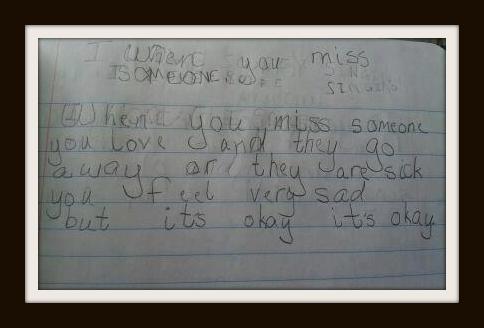 I When you miss
ISOMEONE
When you miss someone
you love and they go
away or they are sick
you feel very sad
but it's okay it's okay